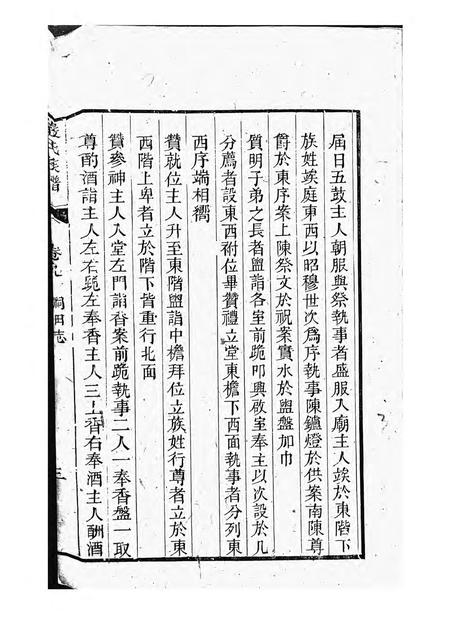 屆日五鼓主人朝服與祭執事者盛服入廟主人竢於東階下
族姓竢庭東西以昭穆世次爲序執事陳鑪燈於供案南陳尊
爵於東序案上陳祭文於祝案實水於盥盤加巾
質明子弟之長者盥詣各室前跪叩興啟室奉主以次設於几
分薦者設東西祔位畢贊禮立堂東檐下西面執事者分列東
西序端相嚮
贊就位主人升至東階盥詣中檐拜位立族姓行尊者立於東
西階上卑者立於階下皆重行北面
贊參神主人入堂左門詣香案前跪執事二人一奉香盤一取
尊酌酒詣主人左右跪左奉香主人三上香右奉酒主人酬酒
氏族譜
卷九
祠田志
三